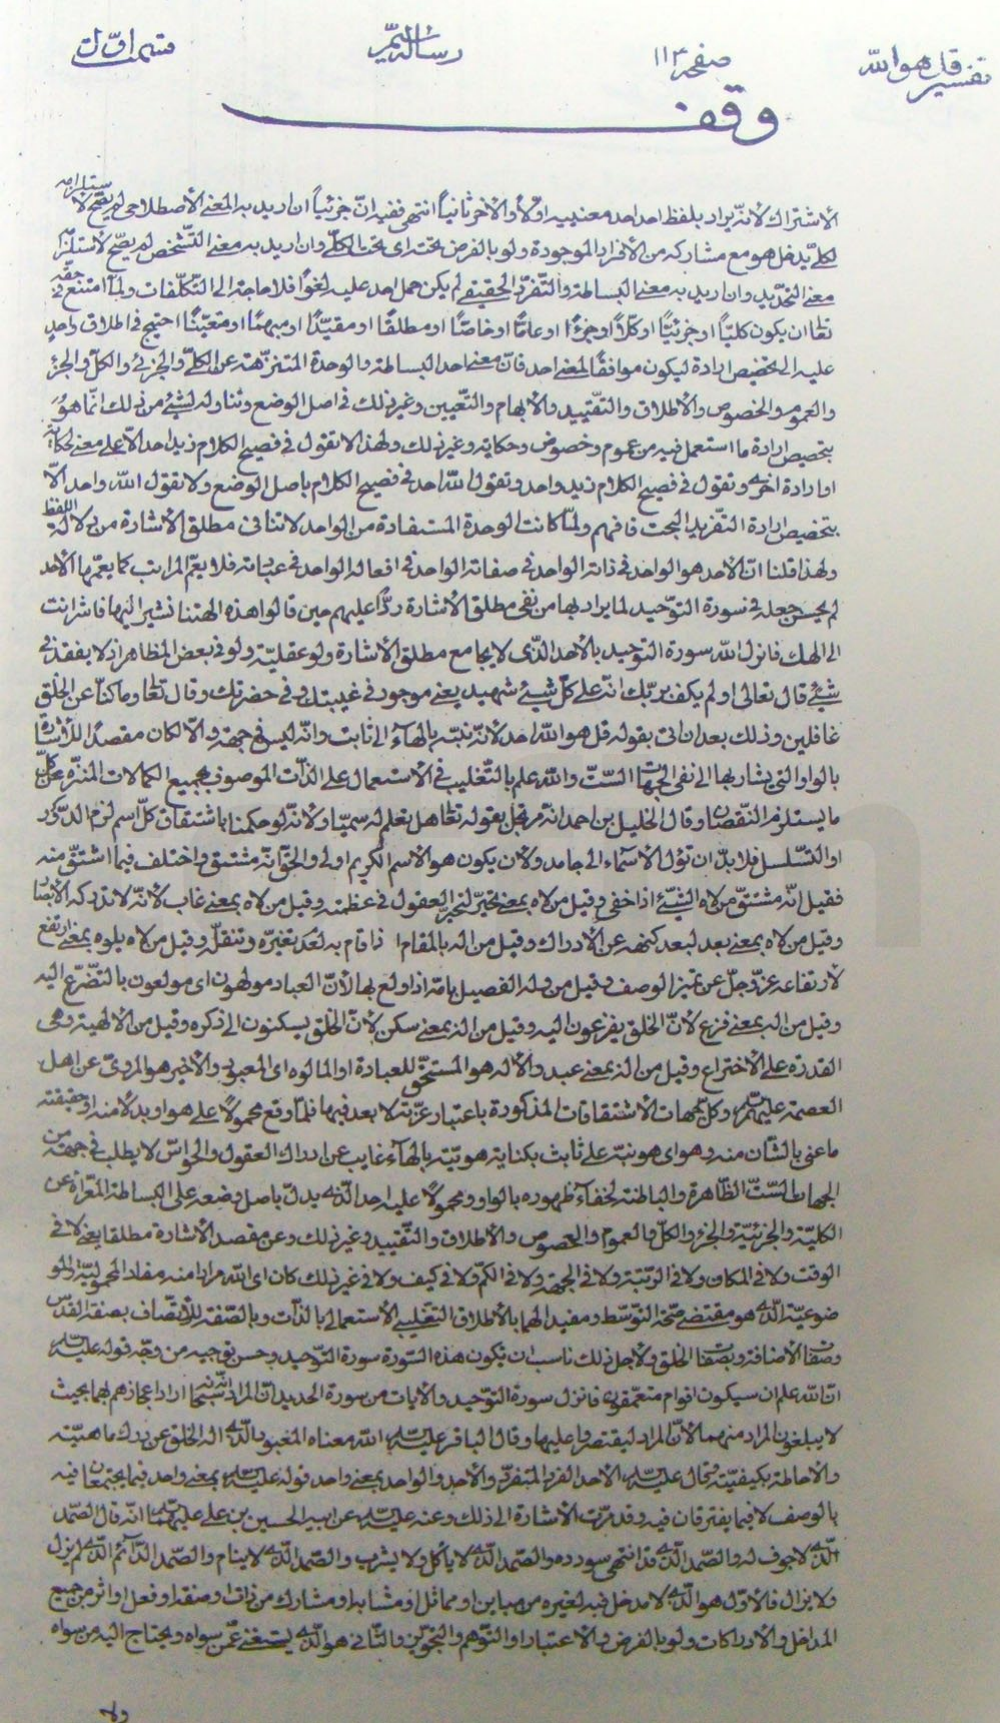 تفسير قل هو الله صفحه ١١٣ رسالة
وقف
الاشتراك لانه يراد بلفظ احد احد معنييه اولا والاخر ثانيا انتهى ففيه ان جزئيا ان اريد به المعنى الاصطلاحى لم يصح لاستلزامه
لكلى يدخل هو مع مشاركه من الافراد الموجودة ولو بالفرض تحته اى تحت الكلى وان اريد به معنى التشخص لم يصح لاستلزامه
معنى التحديد وان اريد به معنى البساطة والتفرد الحقيقى لم يكن حمل احد عليه لغوا فلا حاجة الى التكلفات ولما امتنع فى حقه
تعالى ان يكون كليا او جزئيا او كلا او جزءا او عاما او خاصا او مطلقا او مقيدا او مبهما او متعينا احتيج فى اطلاق واحد
عليه الى تخصيص ارادة ليكون موافقا لمعنى احد فان معنى احد البساطة والوحدة المتنزهة عن الكلى والجزئى والكل والجزء
والعموم والخصوص والاطلاق والتقييد والابهام والتعيين وغير ذلك فى اصل الوضع وتناوله لشئ من ذلك انما هو
بتخصيص ارادة ما استعمل فيه من عموم وخصوص وحكاية وغير ذلك ولهذا لا نقول فى فصيح الكلام زيد احد الا على معنى
او ارادة اخرى ونقول فى فصيح الكلام زيد واحد ونقول الله احد فى فصيح الكلام باصل الوضع ولا نقول الله واحد الا
بتخصيص ارادة التفريد البحت فافهم ولما كانت الوحدة المستفادة من الواحد لا تنافى مطلق الاشارة من دلالة اللفظ
ولهذا قلنا ان الاحد هو الواحد فى ذاته الواحد فى صفاته الواحد فى افعاله الواحد فى عبادته فلا يعم المراتب كما يعمها الاحد
لم يحسن جعله فى سورة التوحيد لما يراد بها من نفى مطلق الاشارة ردا عليهم حين قالوا هذه الهتنا نشير اليها فاشر انت
الى الهك فانزل الله سورة التوحيد بالاحد الذى لا يجامع مطلق الاشارة ولو عقلية ولو فى بعض المظاهر اذ لا يفقد فى
شئ قال تعالى اولم يكف بربك انه على كل شئ شهيد يعنى موجود فى غيبتك وفى حضرتك وقال تعالى وما كنا عن الخلق
غافلين وذلك بعد ان اتى بقوله قل هو الله احد لانه نبه بالهاء الى ثابت وانه ليس فى جهة والا لكان مقصدا للاشارة
بالواو التى يشار بها الى نفى الجهات الست والله علم بالتغليب فى الاستعمال على الذات الموصوف بجميع الكمالات المنزه عن كل
ما يستلزم النقصان وقال الخليل بن احمد انه مرتجل بقوله تعالى هل تعلم له سميا ولانه لو حكمنا باشتقاق كل اسم لزم الدور
او التسلسل فلا بد ان تؤل الاسماء الى جامد ولان يكون هو الاسم الكريم اولى والحق انه مشتق واختلف فيما اشتق منه
فقيل انه مشتق من لاه الشئ اذا خفى وقيل من لاه بمعنى تحير لتحير العقول فى عظمته وقيل من لاه بمعنى غاب لانه لا تدركه الابصار
وقيل من لاه بمعنى بعد لبعد كنهه عن الادراك وقيل من اله بالمقام اذا قام به لعدم تغيره وتنقله وقيل من لاه يلوه بمعنى ارتفع
لارتفاعه عز وجل عن تميز الوصف وقيل من وله الفصيل بامه اذا ولع بها لان العباد مولهون اى مولعون بالتضرع اليه
وقيل من اله بمعنى فزع لان الخلق يفزعون اليه وقيل من اله بمعنى سكن لان الخلق يسكنون الى ذكره وقيل من الالهية وهى
القدرة على الاختراع وقيل من اله بمعنى عبد والاله هو المستحق للعبادة او المالوه اى المعبود والاخير هو المروى عن اهل
العصمة عليهم السلام وكل جهات الاشتقاقات المذكورة باعتبار عزته لا بعد فيها فلما وقع محمولا على هو او بدلا منه او حقيقته
ما عنى بالشان منه وهو اى هو نبه على ثابت بكناية هويته بالهاء غايب عن ادراك العقول والحواس لا يطلب فى جهة من
الجهات الست الظاهرة والباطنة لخفاء ظهوره بالواو ومحمولا عليه احد الذى يدل باصل وضعه على البساطة المعراة عن
الكلية والجزئية والجزء والكل والعموم والخصوص والاطلاق والتقييد وغير ذلك وعن مقصد الاشارة مطلقا يعنى لا فى
الوقت ولا فى المكان ولا فى الرتبة ولا فى الجهة ولا فى الكم ولا فى كيف ولا فى غير ذلك كان اى الله مرادا منه مفاد المحمولية والمو
ضوعية الذى هو مقتضى صحة التوسط ومفيد الهما بالاطلاق التغليبى الاستعمالى بالذات وبالصفة للاتصاف بصفة القدس
وصفات الاضافة وبصفات الخلق ولاجل ذلك ناسب ان يكون هذه السورة سورة التوحيد وحسن توجيه من وجه قوله عليه السلام
ان الله علم ان سيكون اقوام متعمقون فانزل سورة التوحيد والايات من سورة الحديد ان المراد انه سبحانه اراد اعجازهم بهما بحيث
لا يبلغون المراد منهما لان المراد ليقتصروا عليها وقال الباقر عليه السلام الله معناه المعبود الذى اله الخلق عن درك ماهيته
والاحاطة بكيفيته وقال عليه السلام الاحد الفرد المتفرد والاحد والواحد بمعنى واحد قوله عليه السلام بمعنى واحد فيما يجتمعان فيه
بالوصف لا فيما يفترقان فيه وقد مرت الاشارة الى ذلك وعنه عليه السلام عن ابيه الحسين بن على عليهما السلام انه قال الصمد
الذى لا جوف له والصمد الذى قد انتهى سودده والصمد الذى لا ياكل ولا يشرب والصمد الذى لا ينام والصمد الدائم الذى لم يزل
ولا يزال فالاول هو الذى لا مدخل فيه لغيره من مباين او مماثل او مشابه او مشارك من ذات او صفة او فعل او اثر من جميع
المداخل والادراكات ولو بالفرض والاعتبار او التوهم والتجويز والثانى هو الذى يستغنى عمن سواه ويحتاج اليه من سواه
ولا